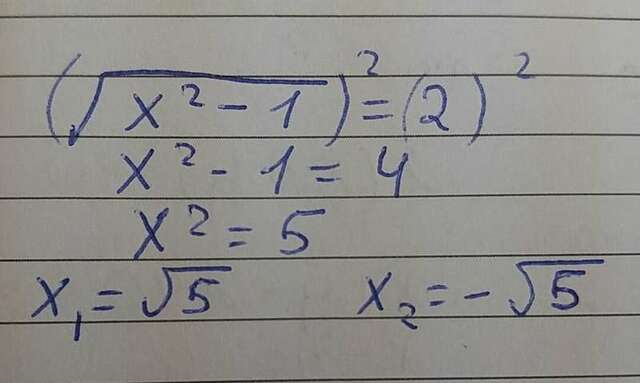 (√(x² - 1))² = (2)²
x² - 1 = 4
x² = 5
x₁ = √5 x₂ = -√5